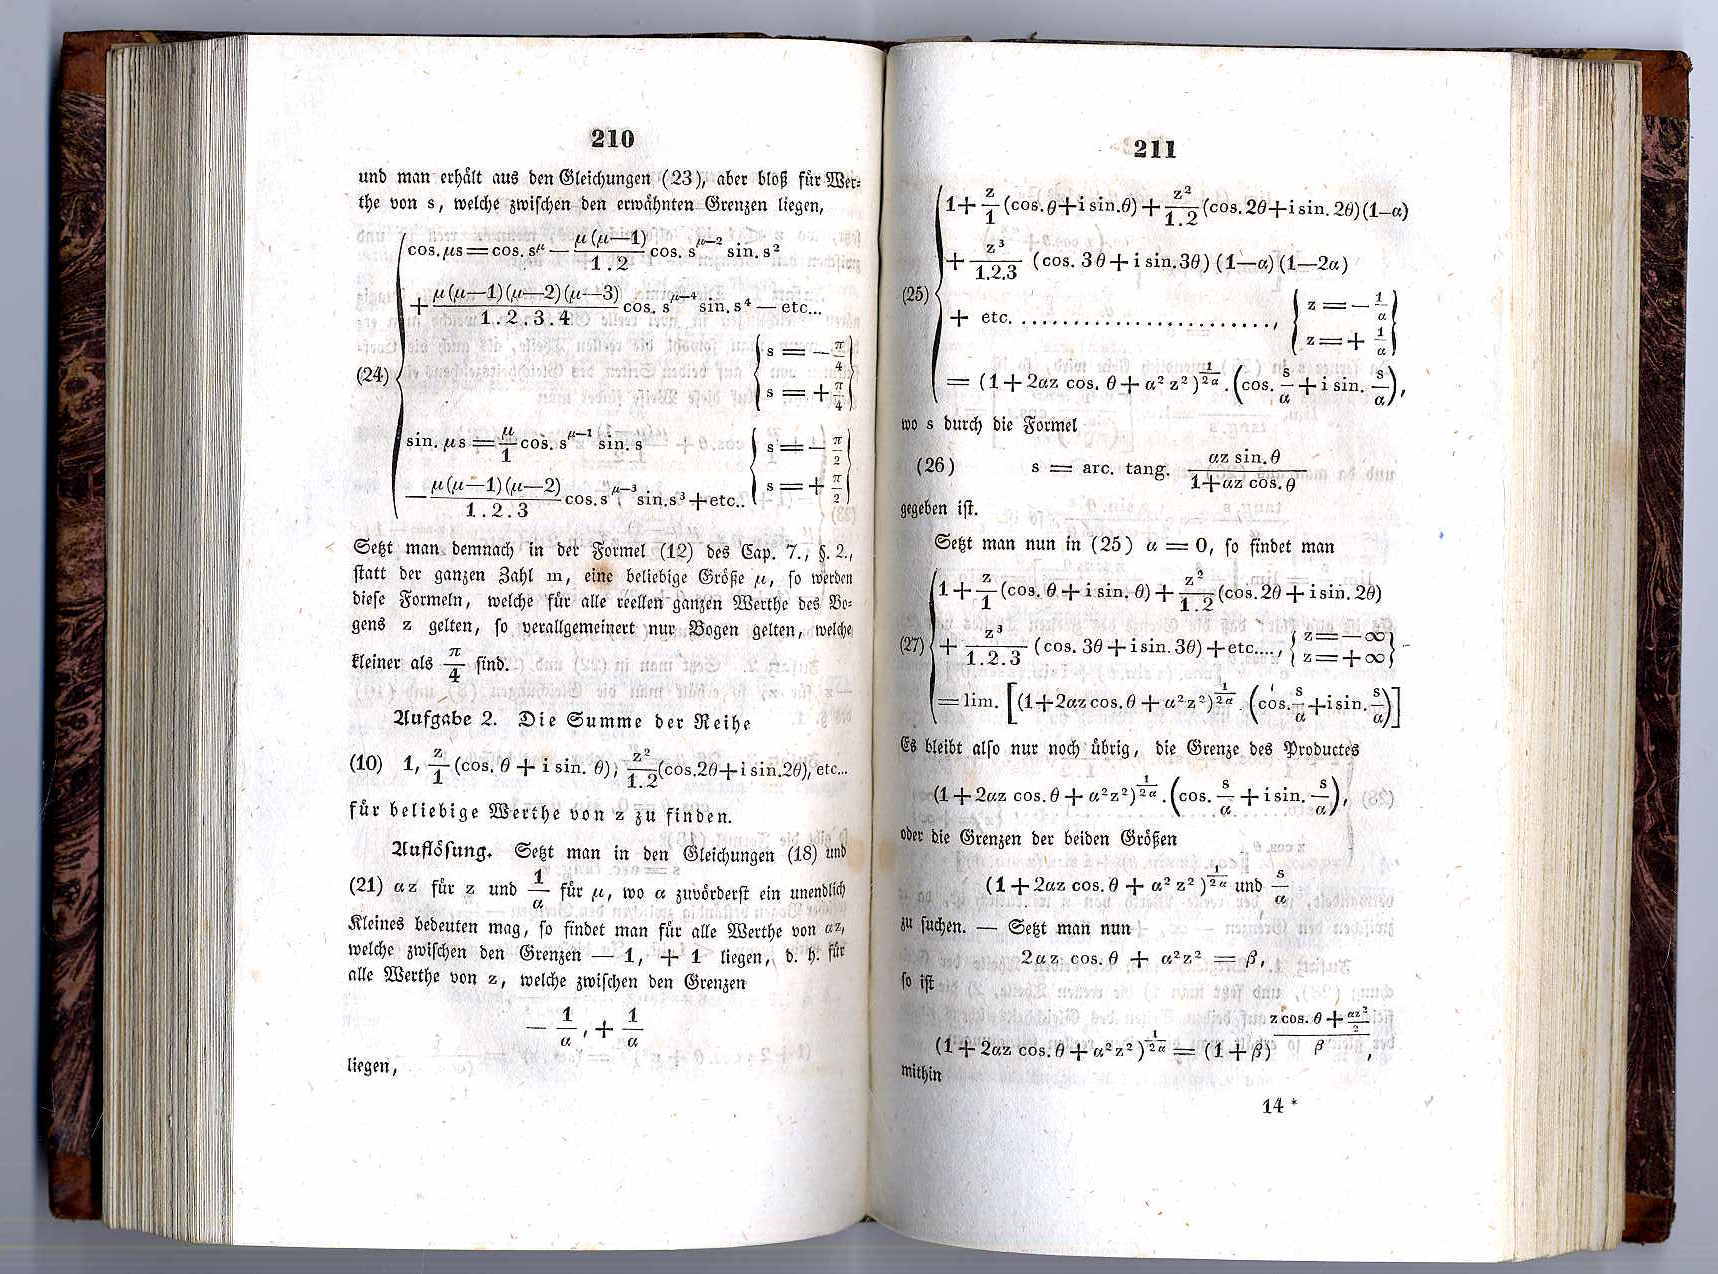 210
und man erhält aus den Gleichungen (23), aber bloß für Wer=
the von s, welche zwischen den erwähnten Grenzen liegen,
cos. μs = cos. s^μ — μ(μ—1)/1.2 cos. s^μ—2 sin. s²
+ μ(μ—1)(μ—2)(μ—3)/1.2.3.4 cos. s^μ—4 sin. s⁴ — etc...
{ s = — π/4 }
(24)
{ s = + π/4 }
sin. μs = μ/1 cos. s^μ—1 sin. s { s = — π/2 }
— μ(μ—1)(μ—2)/1.2.3 cos. s^μ—3 sin. s³ + etc.. { s = + π/2 }
Setzt man demnach in der Formel (12) des Cap. 7., §. 2.,
statt der ganzen Zahl m, eine beliebige Größe μ, so werden
diese Formeln, welche für alle reellen ganzen Werthe des Bo=
gens z gelten, so verallgemeinert nur Bogen gelten, welche
kleiner als π/4 sind.
Aufgabe 2. Die Summe der Reihe
(10) 1, z/1 (cos. θ + i sin. θ), z²/1.2 (cos. 2θ + i sin. 2θ), etc...
für beliebige Werthe von z zu finden.
Auflösung. Setzt man in den Gleichungen (18) und
(21) αz für z und 1/α für μ, wo α zuvörderst ein unendlich
Kleines bedeuten mag, so findet man für alle Werthe von αz,
welche zwischen den Grenzen — 1, + 1 liegen, d. h. für
alle Werthe von z, welche zwischen den Grenzen
— 1/α, + 1/α
liegen,
211
1 + z/1 (cos. θ + i sin. θ) + z²/1.2 (cos. 2θ + i sin. 2θ)(1—α)
+ z³/1.2.3 (cos. 3θ + i sin. 3θ) (1—α) (1—2α)
(25) + etc. ........................, { z = — 1/α } { z = + 1/α }
= (1 + 2αz cos. θ + α² z²)^1/2α . (cos. s/α + i sin. s/α),
wo s durch die Formel
(26) s = arc. tang. αz sin. θ/1 + αz cos. θ
gegeben ist.
Setzt man nun in (25) α = 0, so findet man
1 + z/1 (cos. θ + i sin. θ) + z²/1.2 (cos. 2θ + i sin. 2θ)
(27) + z³/1.2.3 (cos. 3θ + i sin. 3θ) + etc...., { z = — ∞ } { z = + ∞ }
= lim. [(1 + 2αz cos. θ + α²z²)^1/2α . (cos. s/α + i sin. s/α)]
Es bleibt also nur noch übrig, die Grenze des Productes
(1 + 2αz cos. θ + α²z²)^1/2α . (cos. s/α + i sin. s/α),
oder die Grenzen der beiden Größen
(1 + 2αz cos. θ + α² z²)^1/2α und s/α
zu suchen. — Setzt man nun
2αz cos. θ + α²z² = β,
so ist
(1 + 2αz cos. θ + α²z²)^1/2α = (1 + β)^(z cos. θ + αz²/2)/β,
mithin
14 *